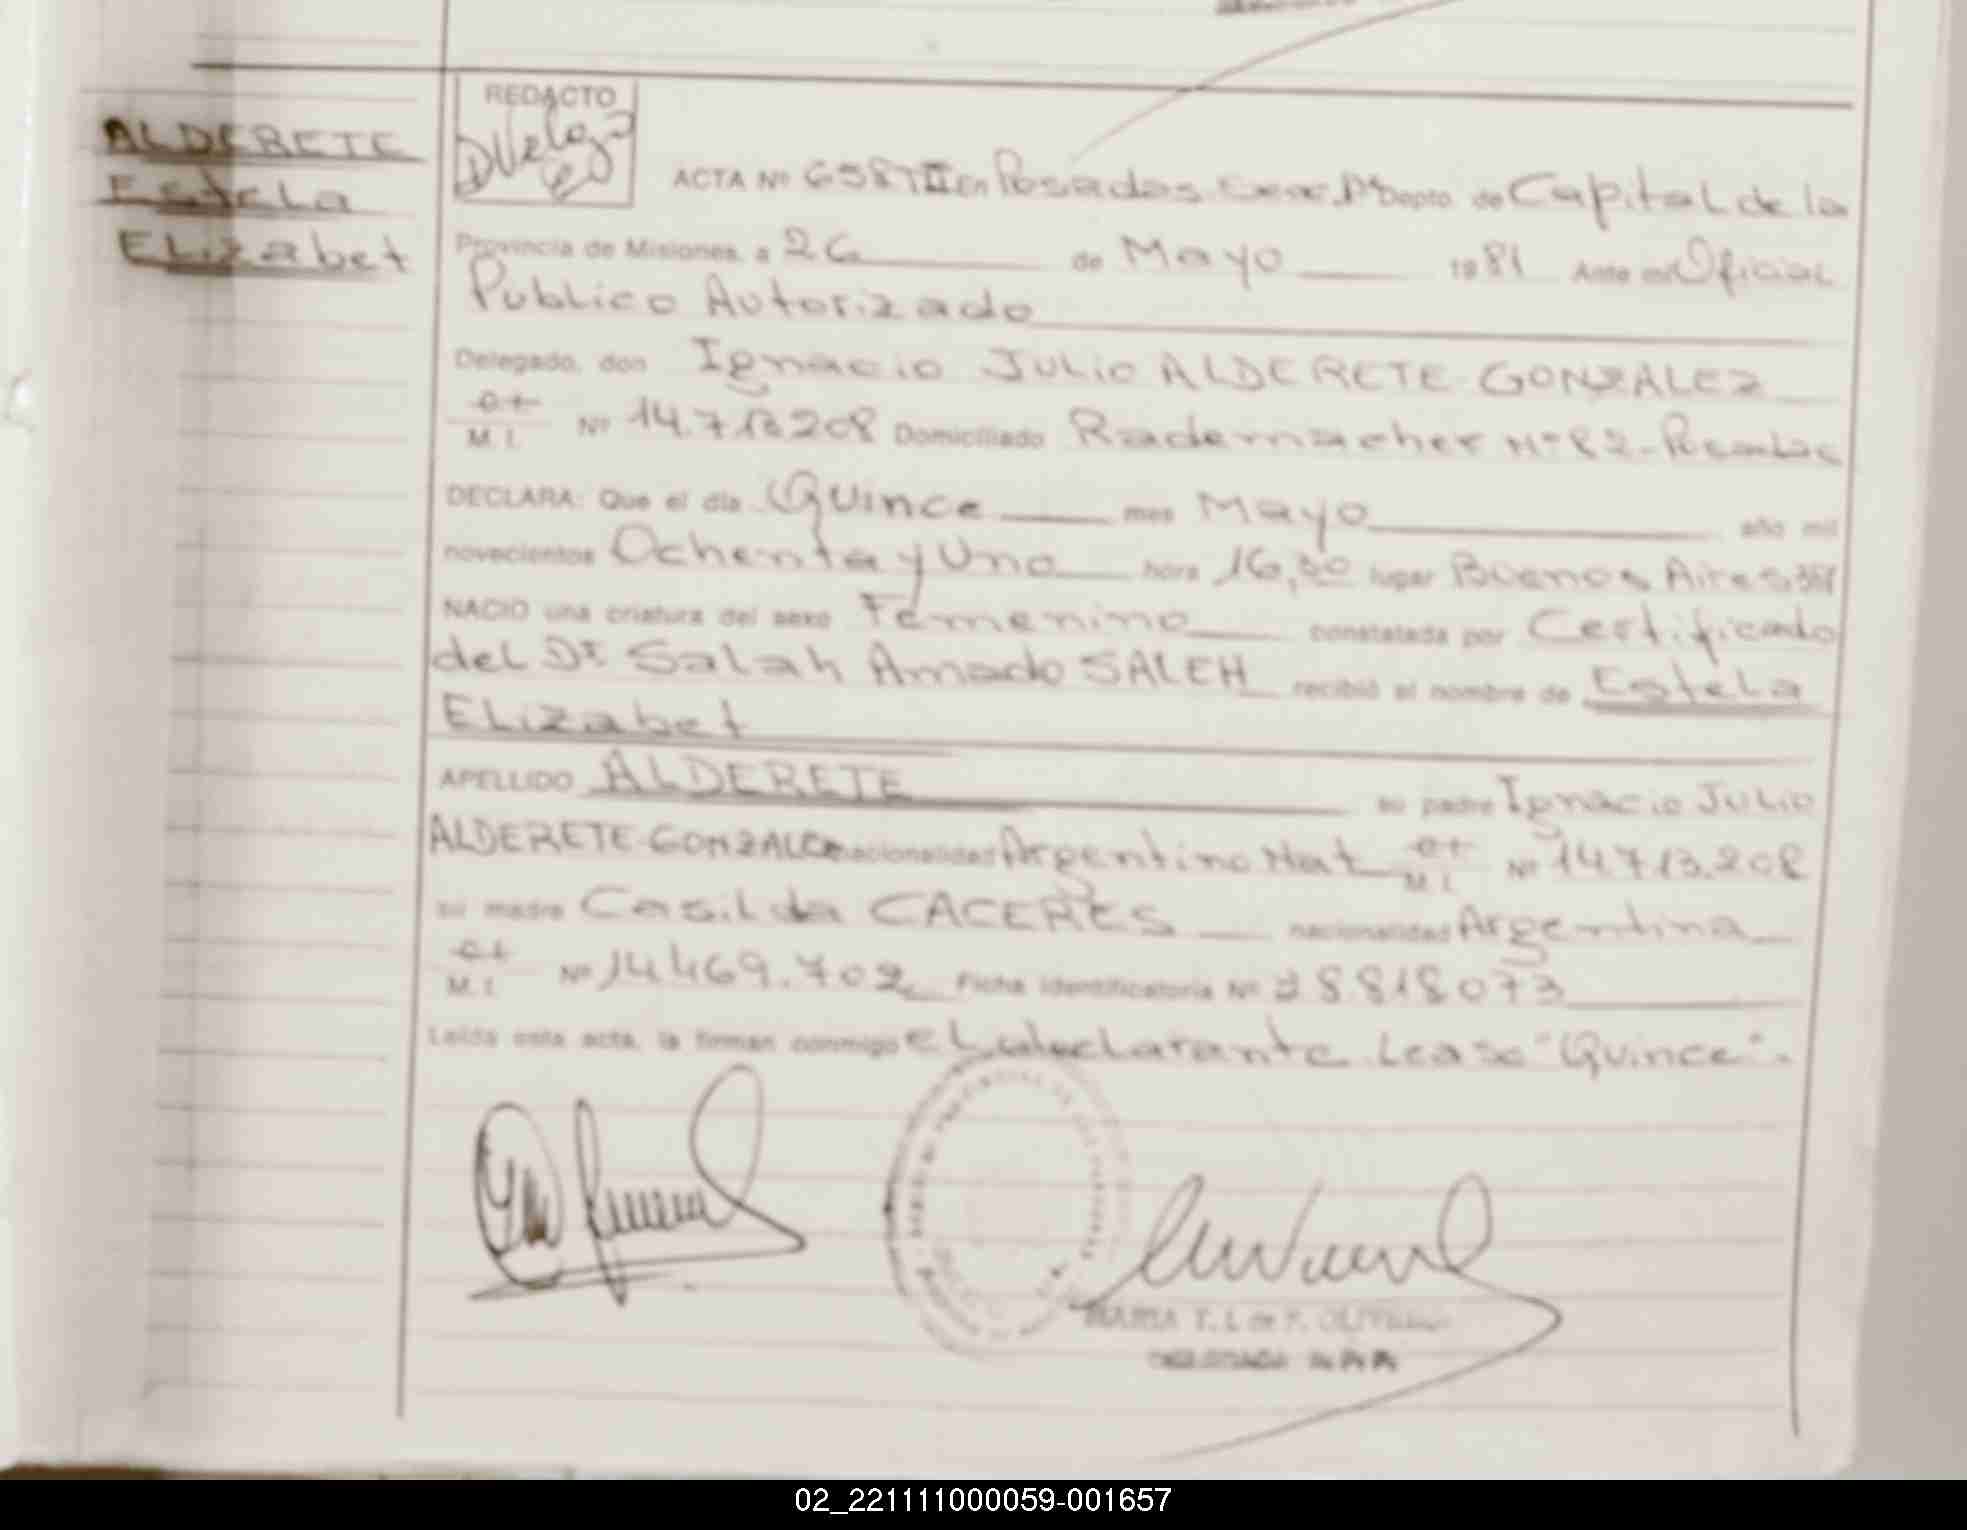 ALDERETE
Estela
ELizabet
REDACTO
ACTA Nº 6587 II En Posadas Depto. de Capital de la
Provincia de Misiones, a 26 de Mayo 1981 Ante mi Oficial
Publico Autorizado
Delegado, don Ignacio Julio ALDERETE GONZALEZ
M. I. Nº 14.713.208 Domiciliado Rademacher Nº 82 - Posadas
DECLARA: Que el día Quince mes Mayo año mil
novecientos Ochenta y Uno hora 16,30 lugar Buenos Aires
NACIO una criatura del sexo Femenino constatada por Certificado
del Dr Salah Amado SALEH recibió el nombre de Estela
ELizabet
APELLIDO ALDERETE su padre Ignacio Julio
ALDERETE GONZALEZ nacionalidad Argentino Nat M. I. Nº 14.713.208
su madre Casilda CACERES nacionalidad Argentina
M. I. Nº 14.469.702 Ficha identificatoria Nº 28818073
Leída esta acta, la firman conmigo el declarante Lease "Quince".
MARIA T. L. de F.
DELEGADA
02_221111000059-001657